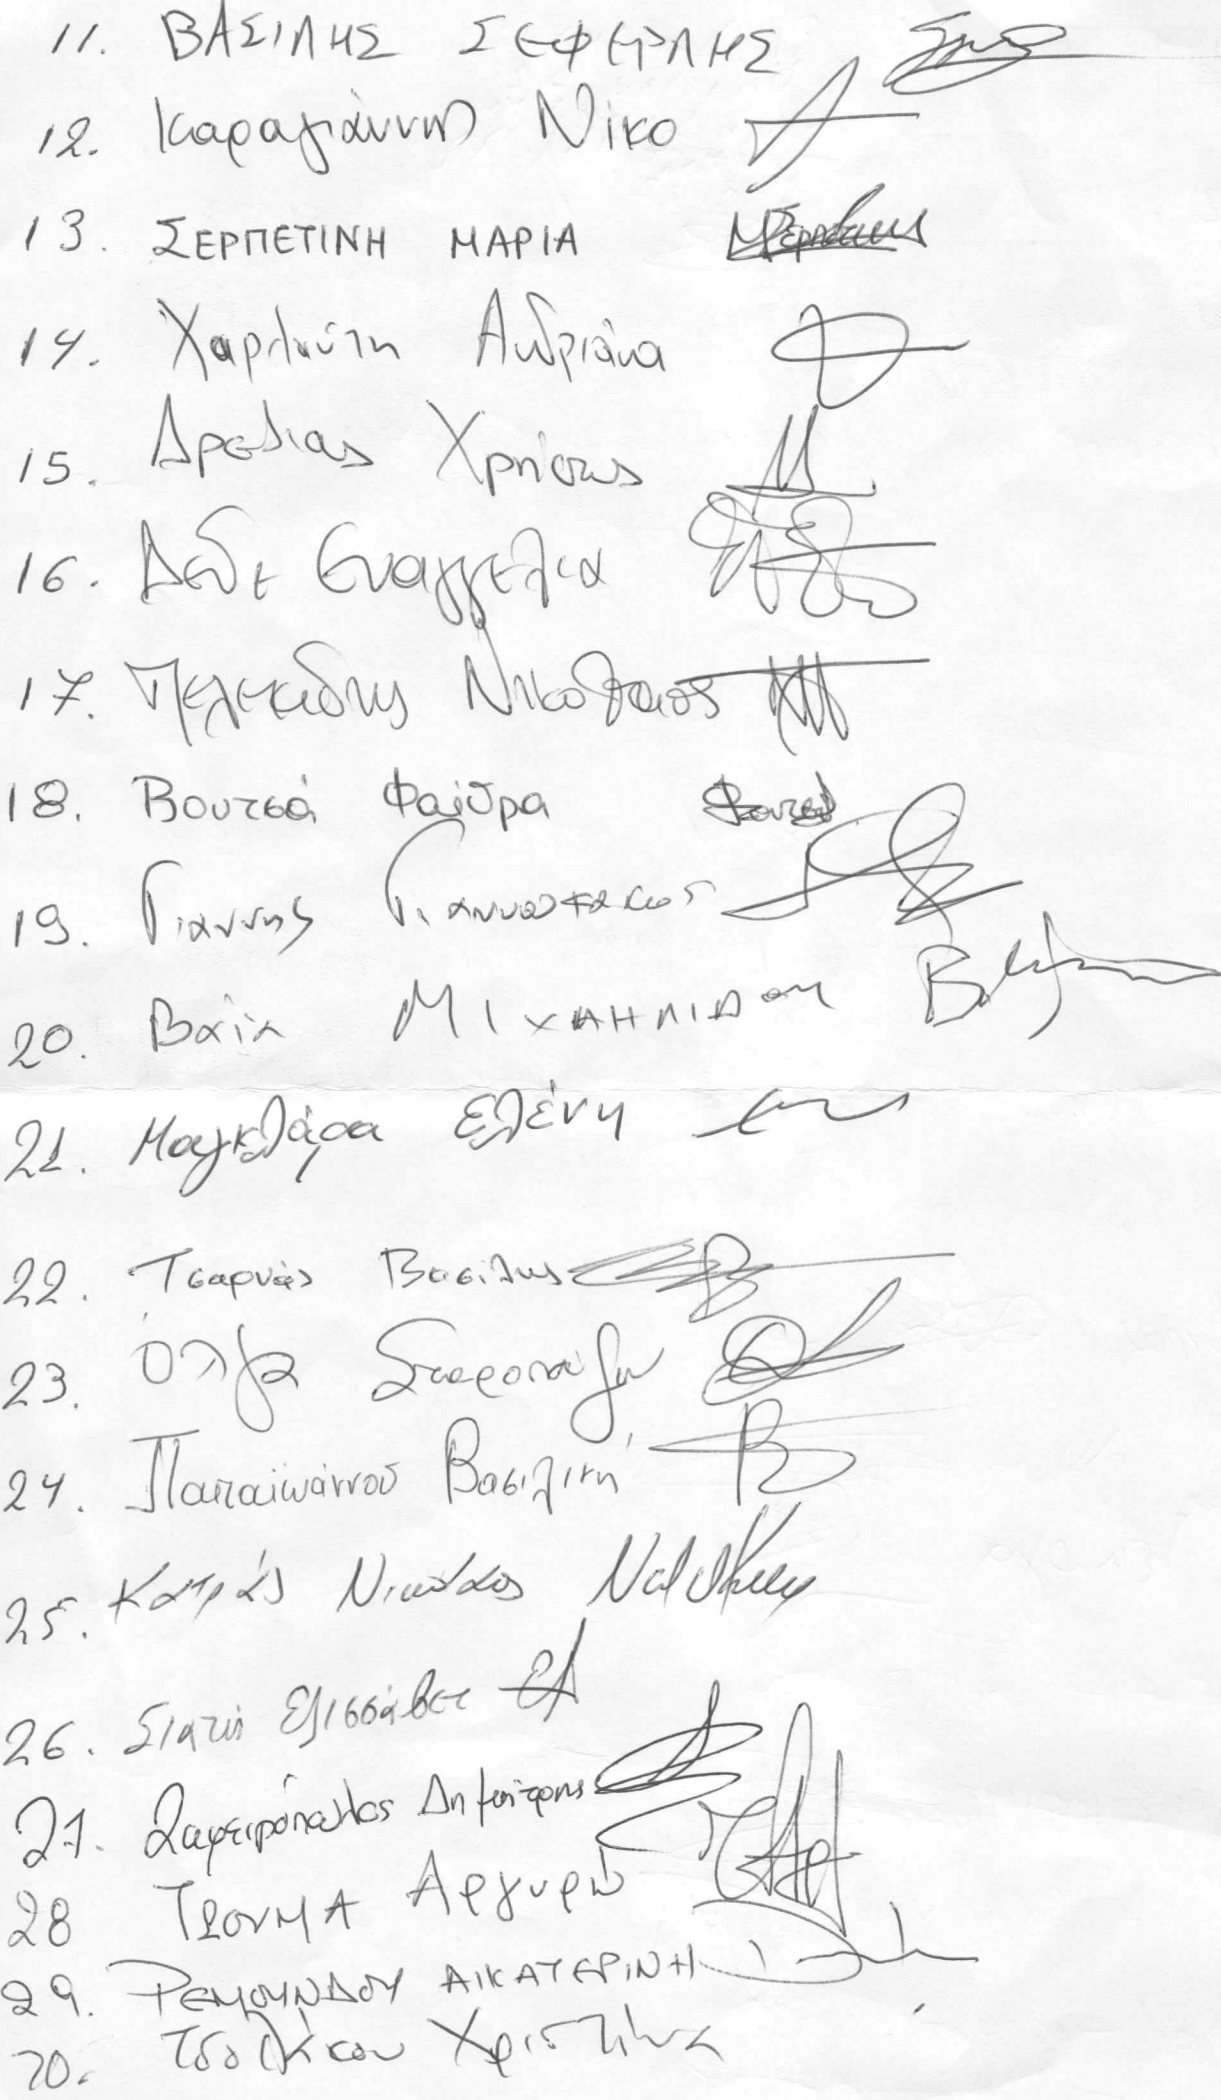 11. ΒΑΣΙΛΗΣ ΣΕΦΕΡΛΗΣ
12. Καραγιάννης Νίκο
13. ΣΕΡΠΕΤΙΝΗ ΜΑΡΙΑ
14. Χαριλαύτη Ανδριάνα
15. Χρήστος
16. Δεδε Ευαγγελια
17. Πελεκιδης Νικολαος
18. Βουτσά Φαίδρα
19. Γιαννης
20. Βαϊα ΜΙΧΑΗΛΙΔΟΥ
21. Μαγκλάρα Ελένη
22. Τσαρνάς Βασίλης
23. Όλγα
24. Παπαϊωάννου Βασιλική
25. Κατράς Νικόλαος
26. Ελισσάβετ
27. Ζαφειρόπουλος Δημήτρης
28 ΤΖΟΥΜΑ Αργυρώ
29. ΡΕΜΟΥΝΔΟΥ ΑΙΚΑΤΕΡΙΝΗ
30. Τσολάκου Χριστίνα